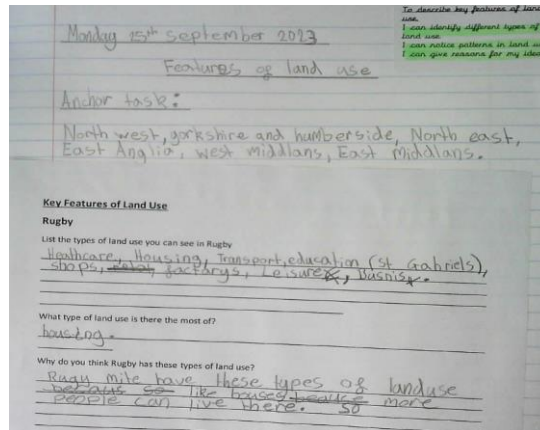 To describe key features of land
use.
I can identify different types of
land use.
I can notice patterns in land u
I can give reasons for my idea
Monday 25th september 2023
Features of land use
Anchor task:
North west, yorkshire and humberside, North east,
East Anglia, west middlans, East middlans.
Key Features of Land Use
Rugby
List the types of land use you can see in Rugby
Healthcare, Housing, Transport, education (St Gabriels),
shops, factarys, Leisure, Busnis.
What type of land use is there the most of?
housing.
Why do you think Rugby has these types of land use?
Rugy mite have these types of landuse
becaus so like houses beauce more
people can live there. so